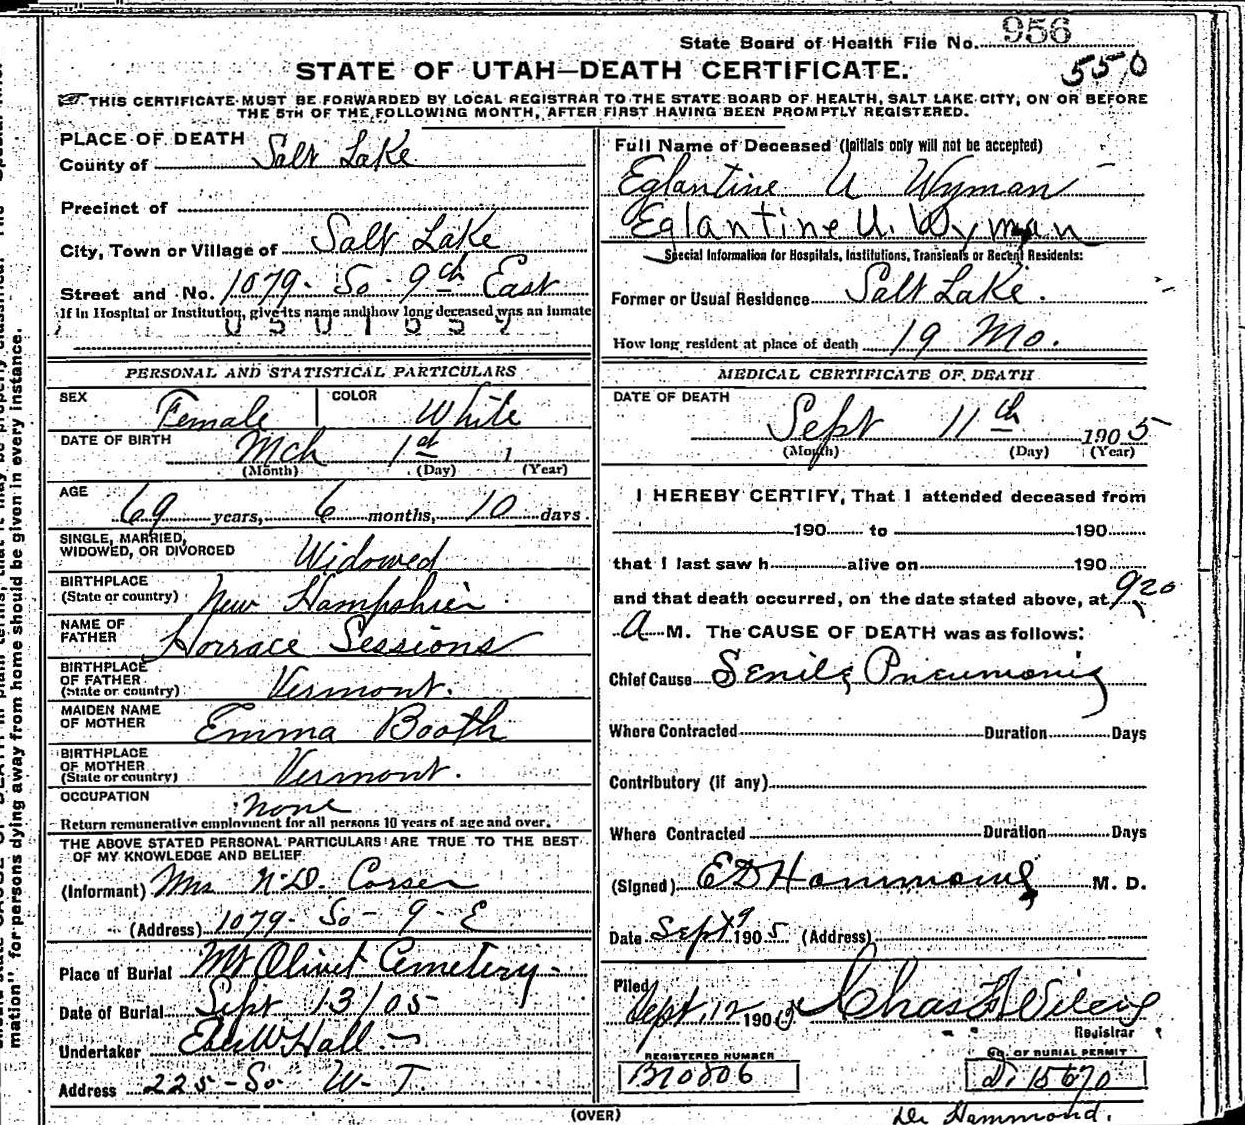 State Board of Health File No. 956
550
STATE OF UTAH—DEATH CERTIFICATE.
THIS CERTIFICATE MUST BE FORWARDED BY LOCAL REGISTRAR TO THE STATE BOARD OF HEALTH, SALT LAKE CITY, ON OR BEFORE
THE 5TH OF THE FOLLOWING MONTH, AFTER FIRST HAVING BEEN PROMPTLY REGISTERED.
PLACE OF DEATH
County of Salt Lake
Precinct of
City, Town or Village of Salt Lake
Street and No. 1079- So- 9th East
If in Hospital or Institution, give its name and how long deceased was an inmate
PERSONAL AND STATISTICAL PARTICULARS
SEX Female COLOR White
DATE OF BIRTH Mch 1st 1
(Month) (Day) (Year)
AGE 69 years, 6 months, 10 days.
SINGLE, MARRIED,
WIDOWED, OR DIVORCED Widowed
BIRTHPLACE
(State or country) New Hampshier
NAME OF
FATHER Horrace Sessions
BIRTHPLACE
OF FATHER
(State or country) Vermont.
MAIDEN NAME
OF MOTHER Emma Booth
BIRTHPLACE
OF MOTHER
(State or country) Vermont.
OCCUPATION None
Return remunerative employment for all persons 10 years of age and over.
THE ABOVE STATED PERSONAL PARTICULARS ARE TRUE TO THE BEST
OF MY KNOWLEDGE AND BELIEF
(Informant) Mrs N.D. Corser
(Address) 1079- So- 9- E
Place of Burial Mt Olivet Cemetery-
Date of Burial Sept 13/05
Undertaker Eber W Hall
Address 225- So- W- T.
Full Name of Deceased (Initials only will not be accepted)
Eglantine U Wyman
Eglantine U. Wyman
Special Information for Hospitals, Institutions, Transients or Recent Residents:
Former or Usual Residence Salt Lake.
How long resident at place of death 19 Mo.
MEDICAL CERTIFICATE OF DEATH
DATE OF DEATH
Sept 11th 1905
(Month) (Day) (Year)
I HEREBY CERTIFY, That I attended deceased from
190 to 190
that I last saw h alive on 190
and that death occurred, on the date stated above, at 920
A M. The CAUSE OF DEATH was as follows:
Chief Cause Senile Pneumonia
Where Contracted Duration Days
Contributory (if any)
Where Contracted Duration Days
(Signed) E D Hammond M. D.
Date Sept 1905 (Address)
Filed
Sept 12 190
Registrar
REGISTERED NUMBER
B10806
NO. OF BURIAL PERMIT
D. 15670
(OVER)
Dr Hammond.
mation" for persons dying away from home should be given in every instance.